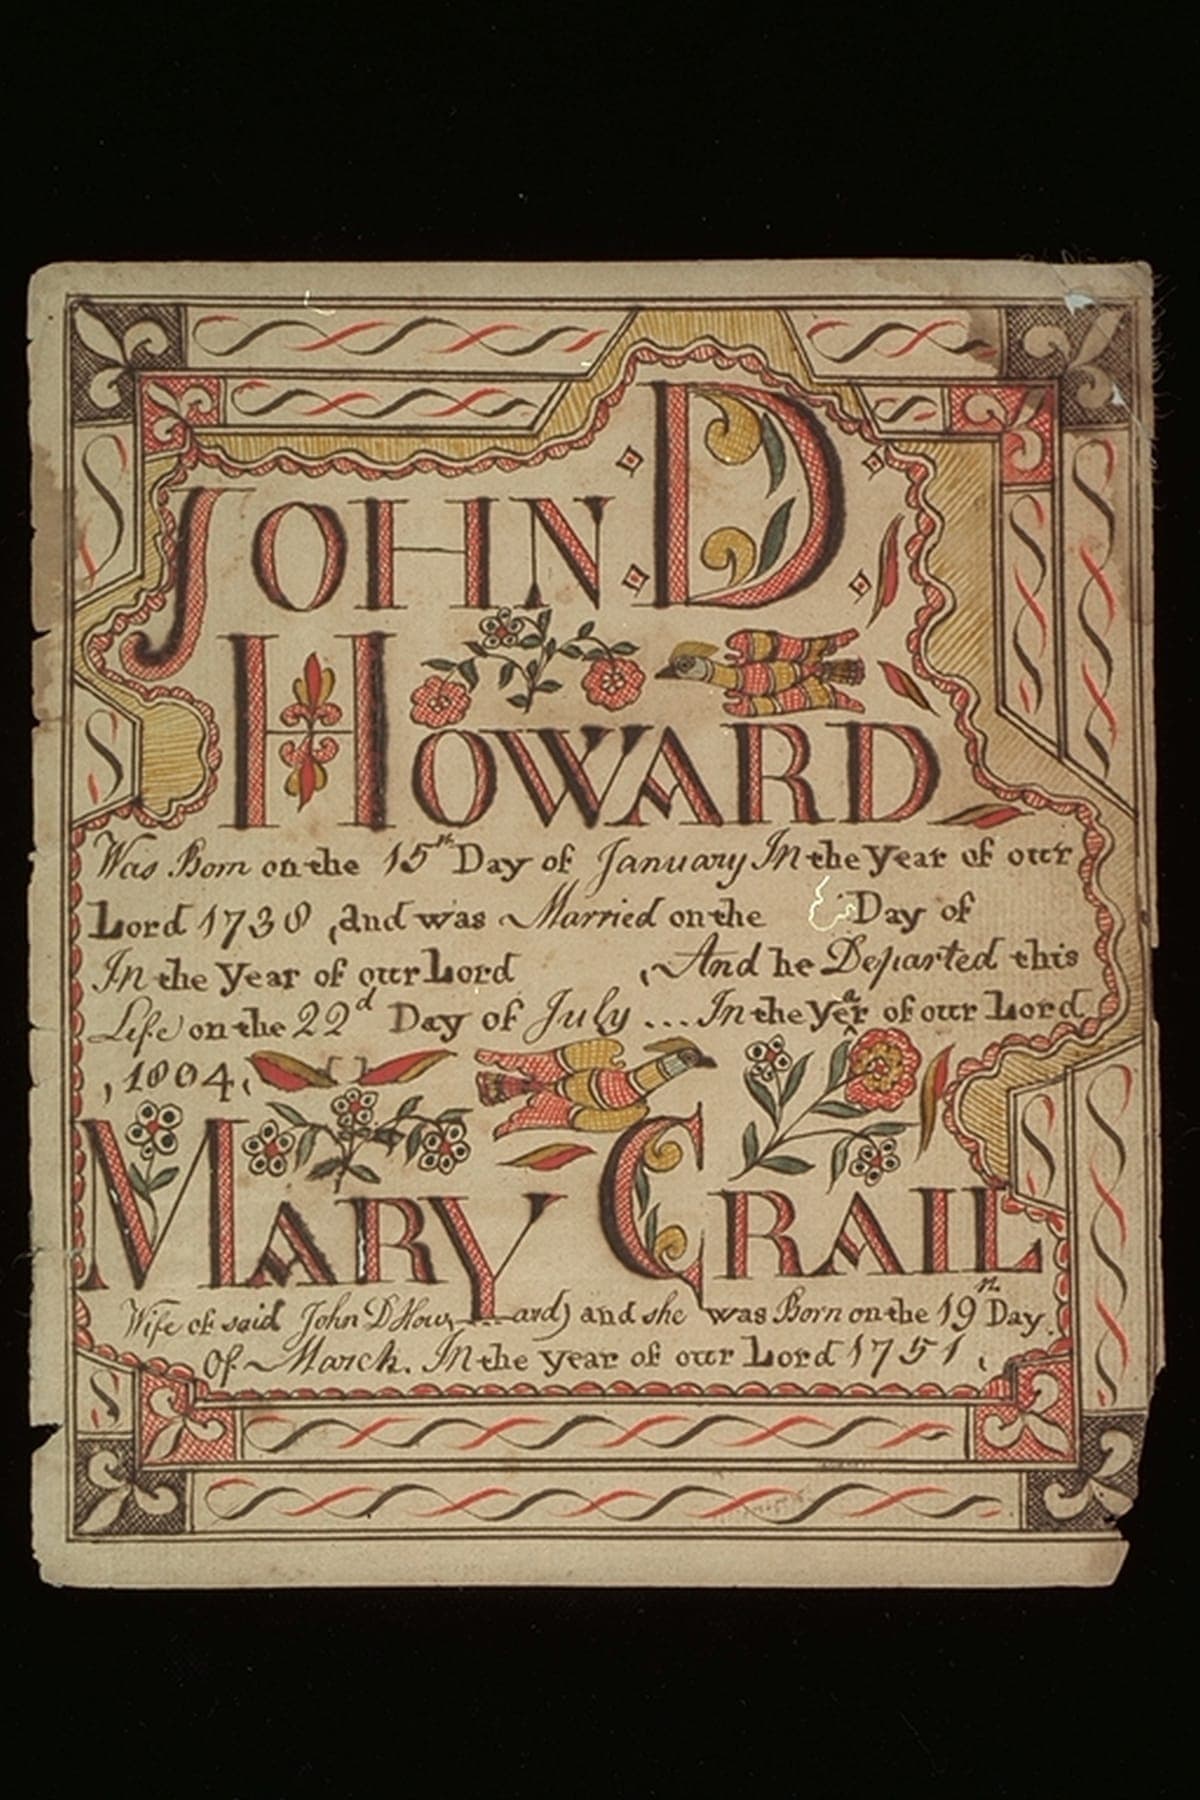 JOHN D
HOWARD
Was Born on the 15th Day of January In the Year of our
Lord 1738, and was Married on the Day of
In the Year of our Lord , And he Departed this
Life on the 22d Day of July ... In the Year of our Lord
, 1804.
MARY CRAIL
Wife of said John D How-...-ard) and she was Born on the 19th Day
Of March. In the year of our Lord 1751.